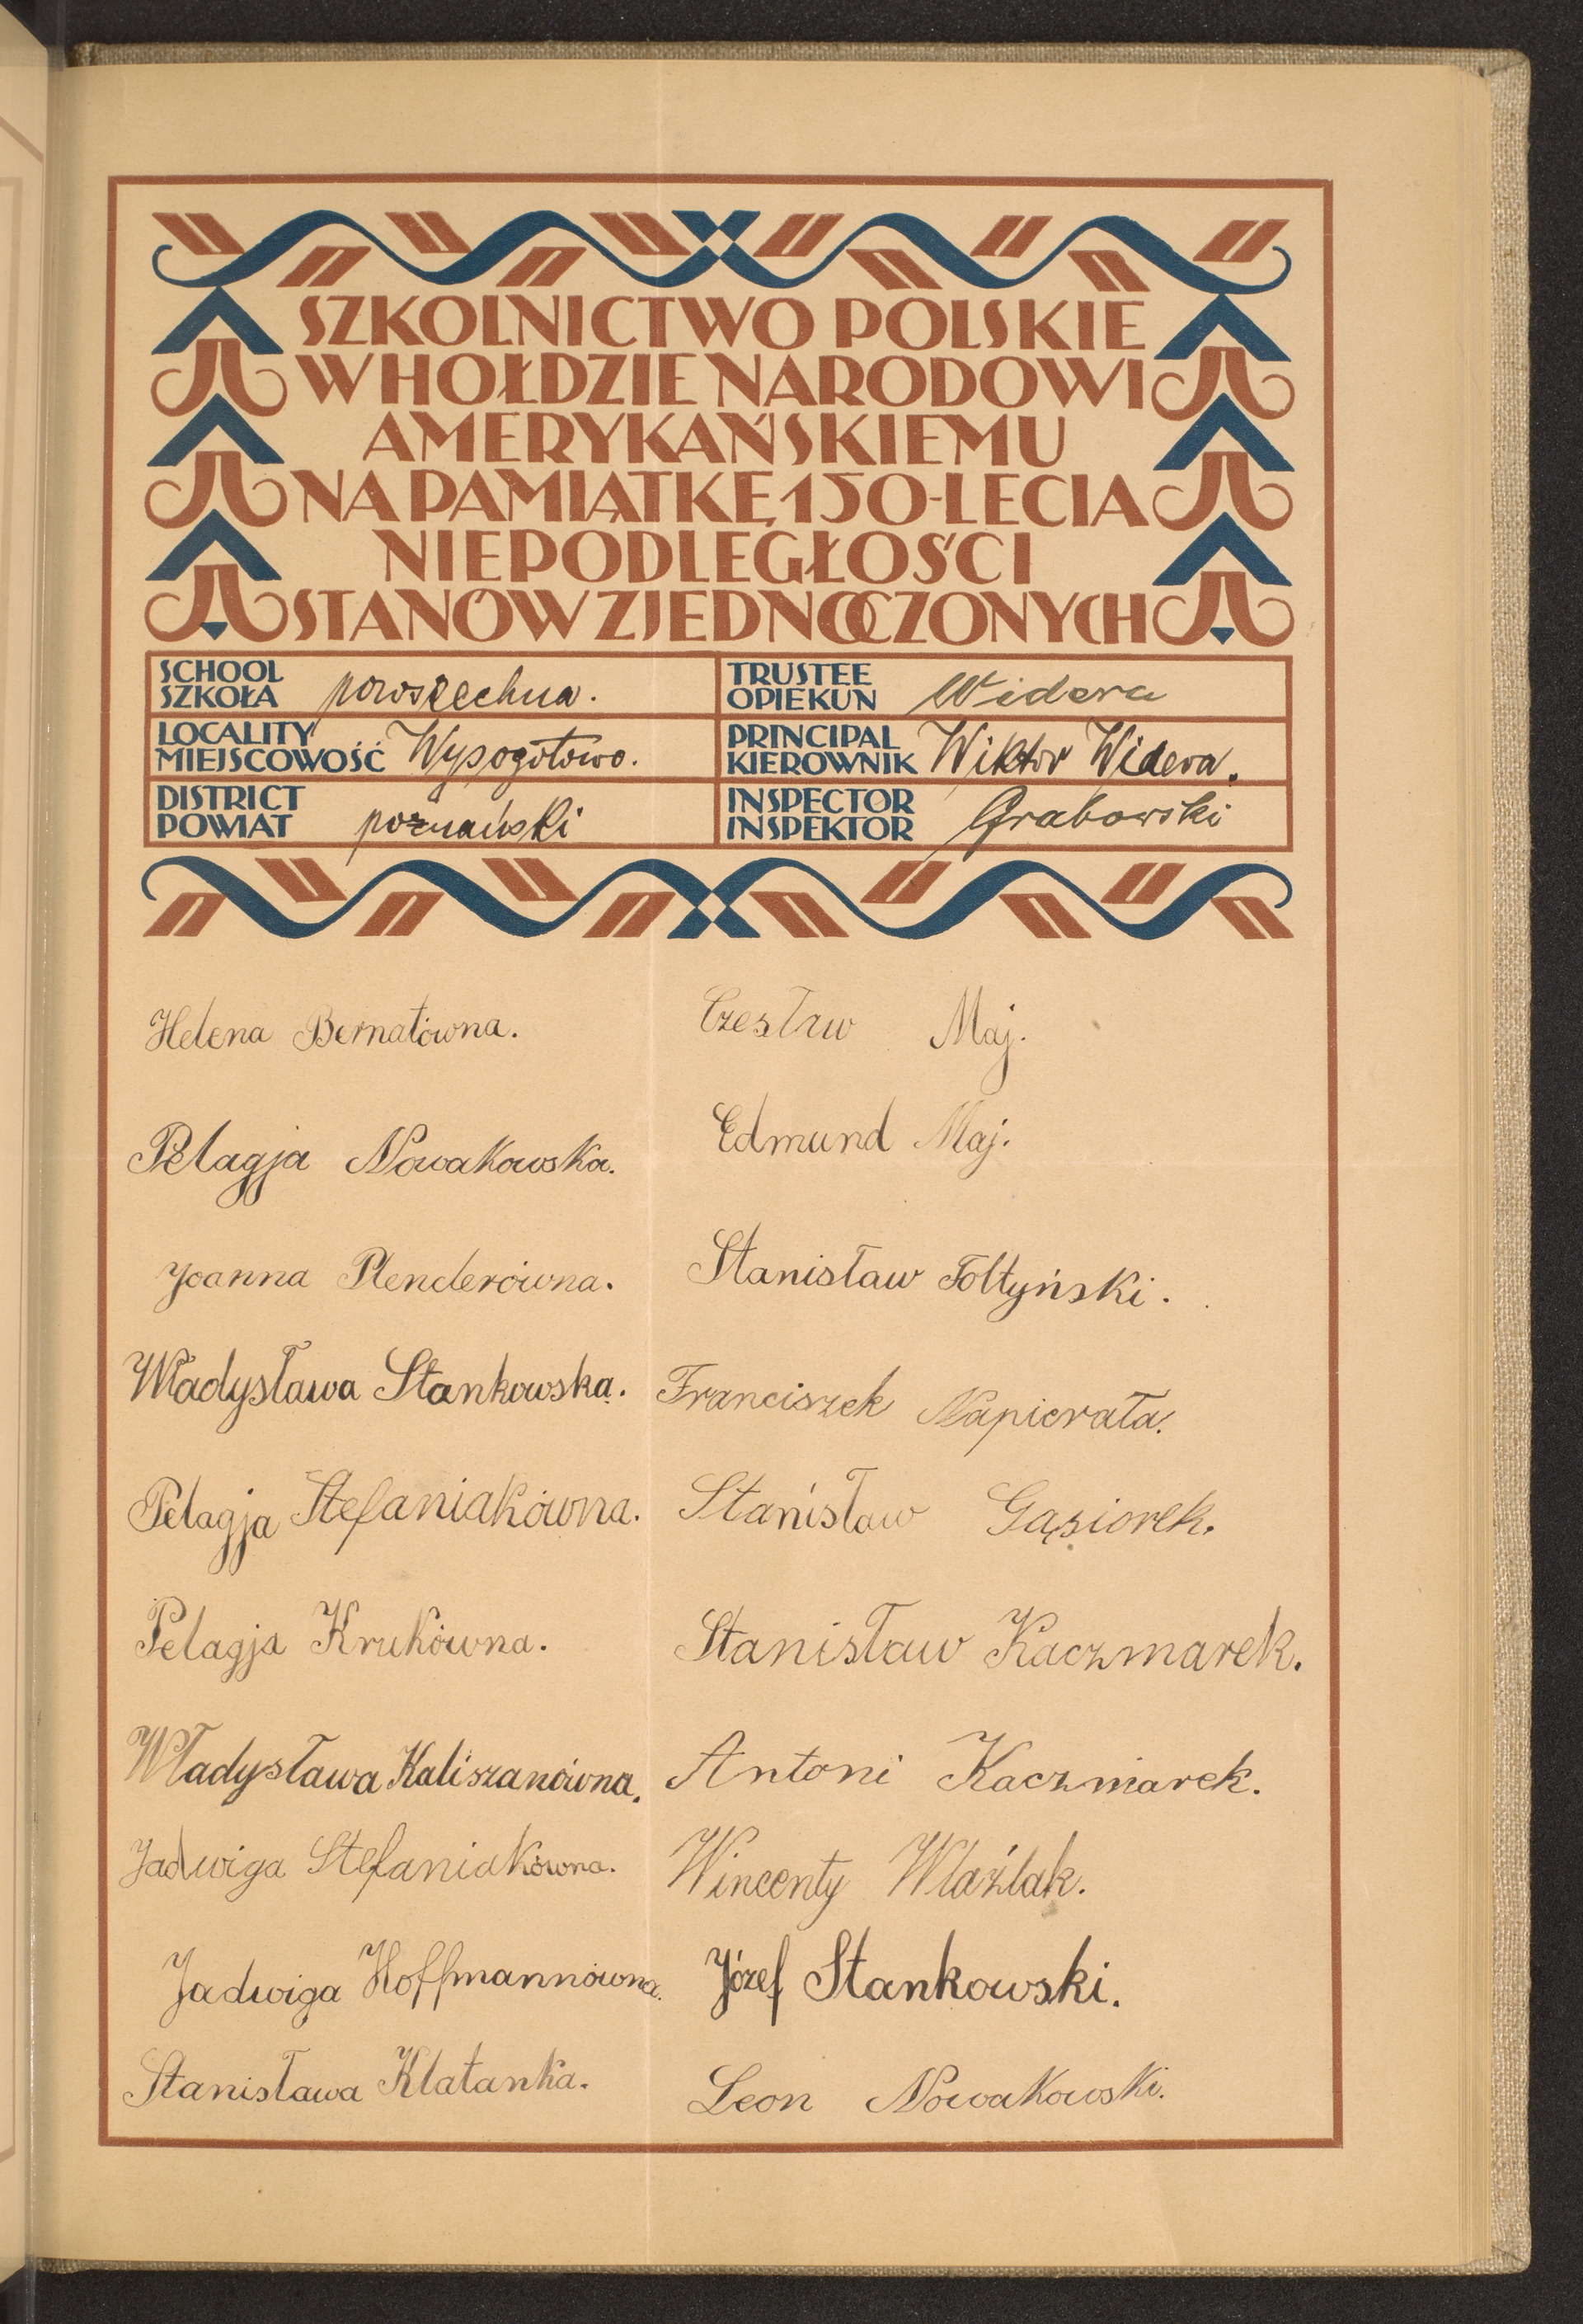 SZKOLNICTWO POLSKIE
W HOŁDZIE NARODOWI
AMERYKAŃSKIEMU
NA PAMIĄTKĘ 150-LECIA
NIEPODLEGŁOŚCI
STANÓW ZJEDNOCZONYCH
SCHOOL
SZKOŁA powszechna.
TRUSTEE
OPIEKUN Widera
LOCALITY
MIEJSCOWOŚĆ Wysogotowo.
PRINCIPAL
KIEROWNIK Wiktor Widera.
DISTRICT
POWIAT poznański
INSPECTOR
INSPEKTOR Grabowski
Helena Bernatówna.
Pelagja Nowakowska.
Joanna Plenderówna.
Władysława Stankowska.
Pelagja Stefaniakówna.
Pelagja Krukówna.
Władysława Kaliszanówna.
Jadwiga Stefaniakówna.
Jadwiga Hoffmannówna.
Stanisława Klatanka.
Czesław Maj.
Edmund Maj.
Stanisław Foltyński.
Franciszek Napierała.
Stanisław Gąsiorek.
Stanisław Kaczmarek.
Antoni Kaczmarek.
Wincenty Wlaźlak.
Józef Stankowski.
Leon Nowakowski.